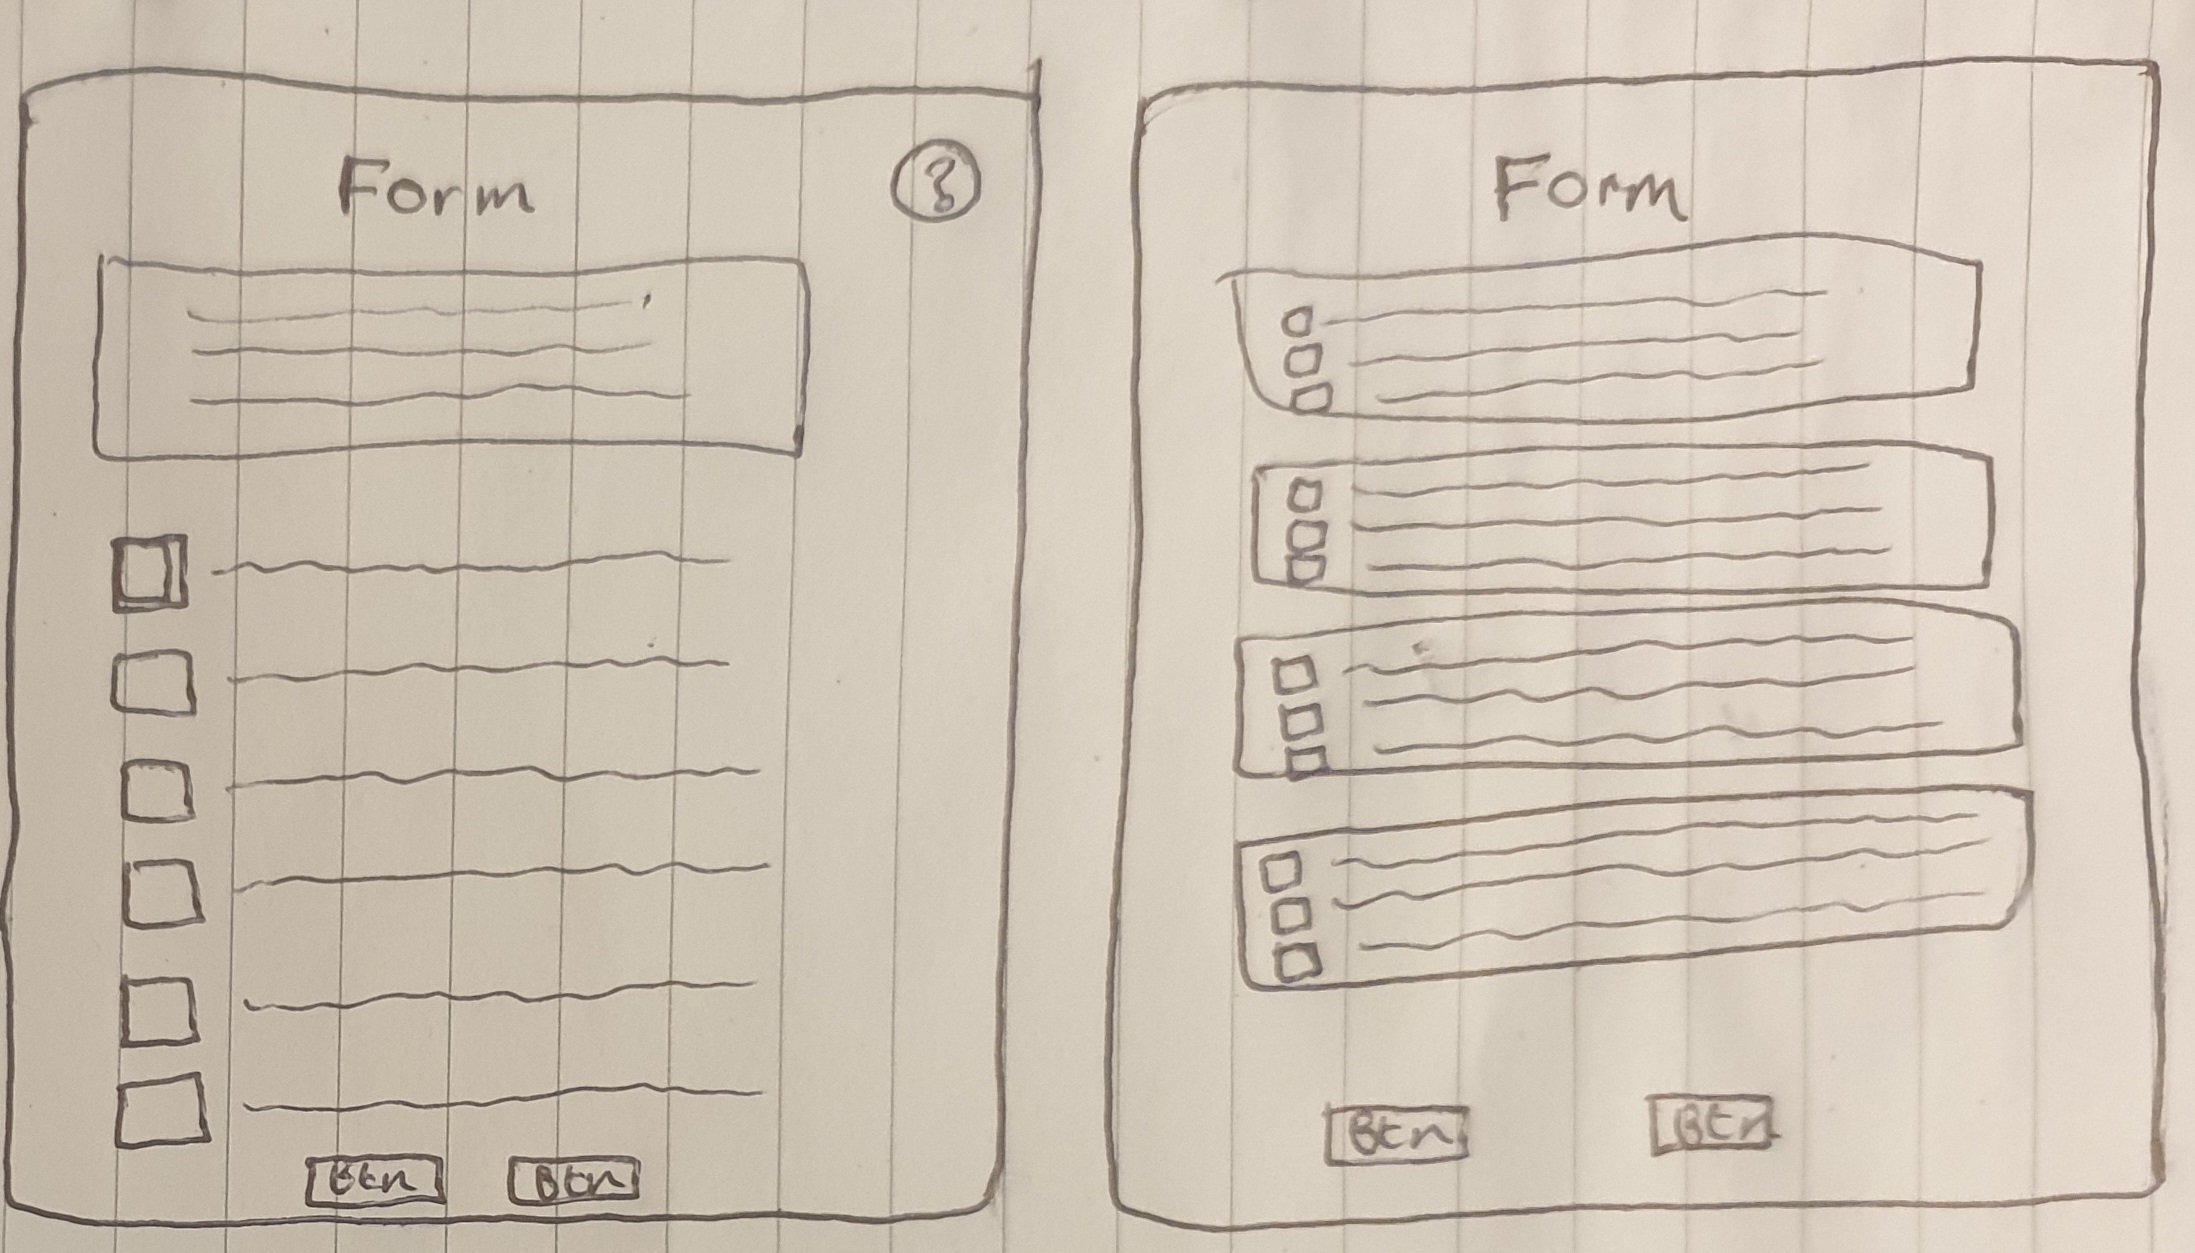 Form
3
Btn Btn
Form
Btn Btn